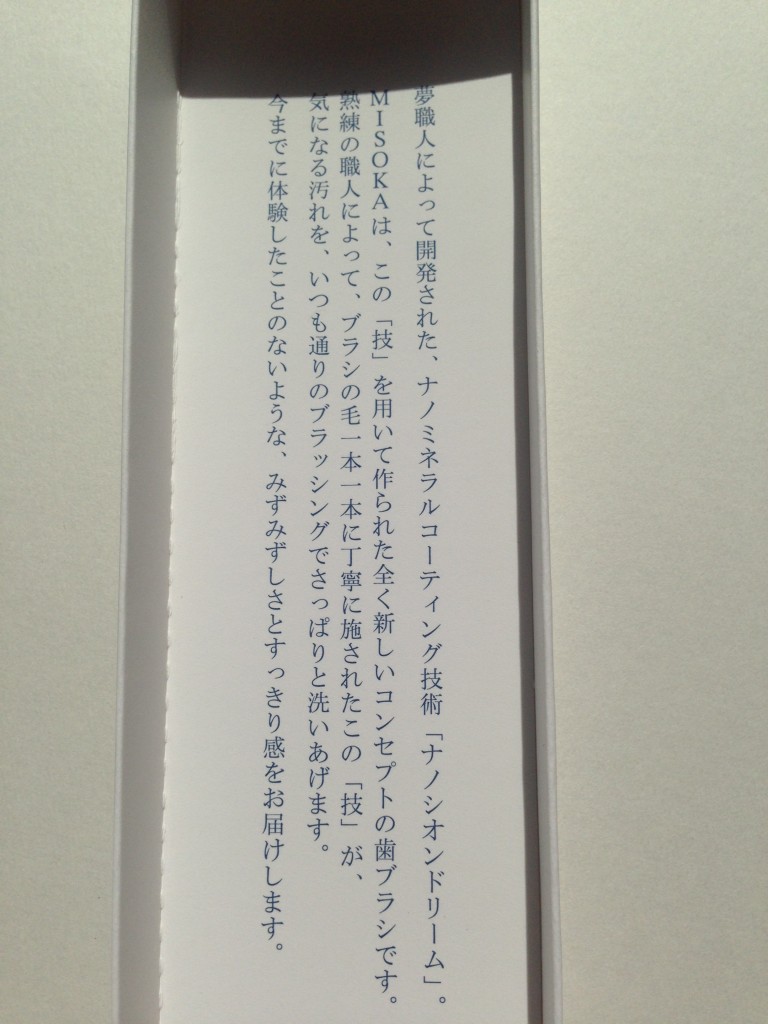 夢職人によって開発された、ナノミネラルコーティング技術「ナノシオンドリーム」。
MISOKAは、この「技」を用いて作られた全く新しいコンセプトの歯ブラシです。
熟練の職人によって、ブラシの毛一本一本に丁寧に施されたこの「技」が、
気になる汚れを、いつも通りのブラッシングでさっぱりと洗いあげます。
今までに体験したことのないような、みずみずしさとすっきり感をお届けします。